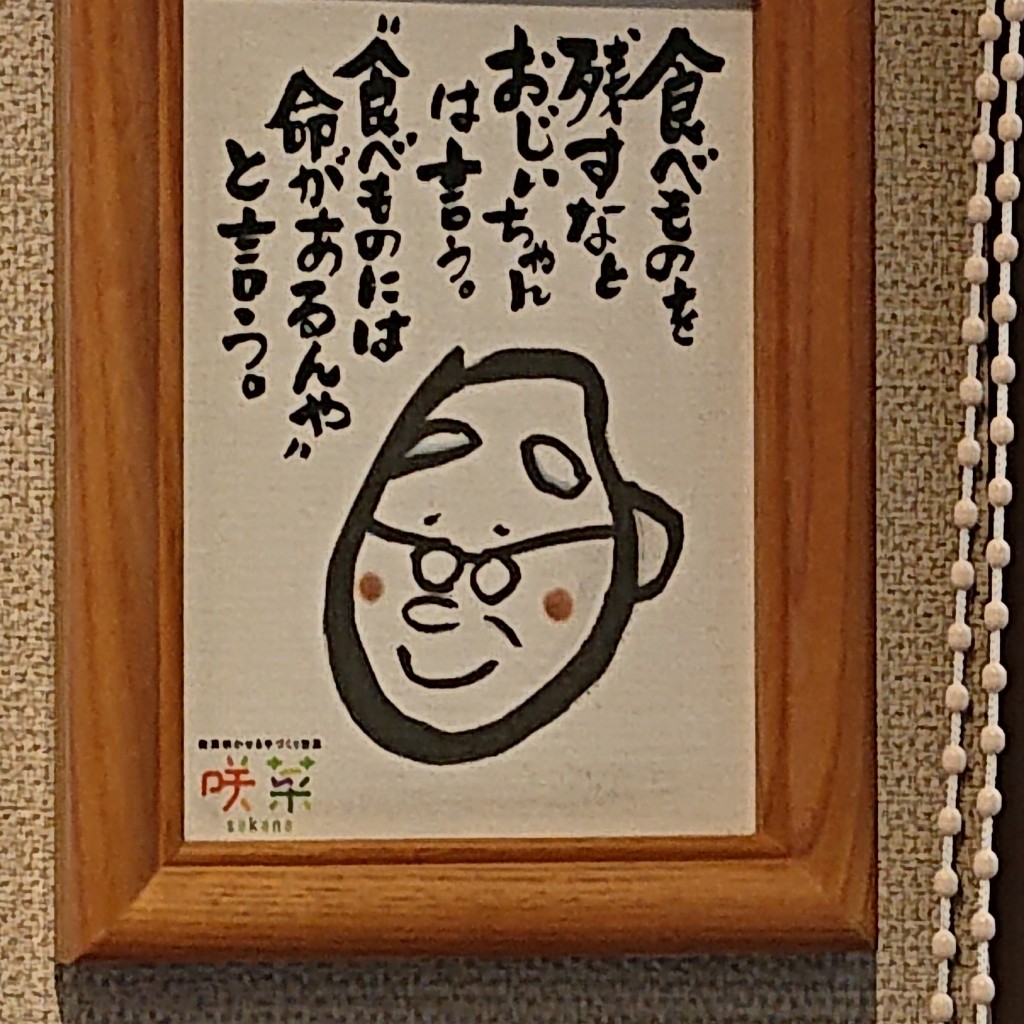 食べものを
残すなと
おじいちゃん
は言う。
"食べものには
命があるんや"
と言う。
咲菜
sakana